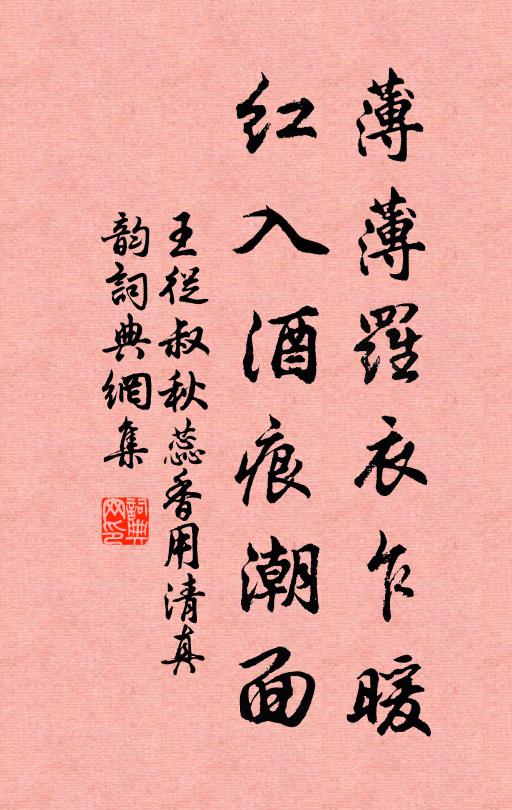 薄薄羅衣乍暖
紅入酒痕潮面
王從叔秋蕊香用清真
韵詞典網集
詞典网印